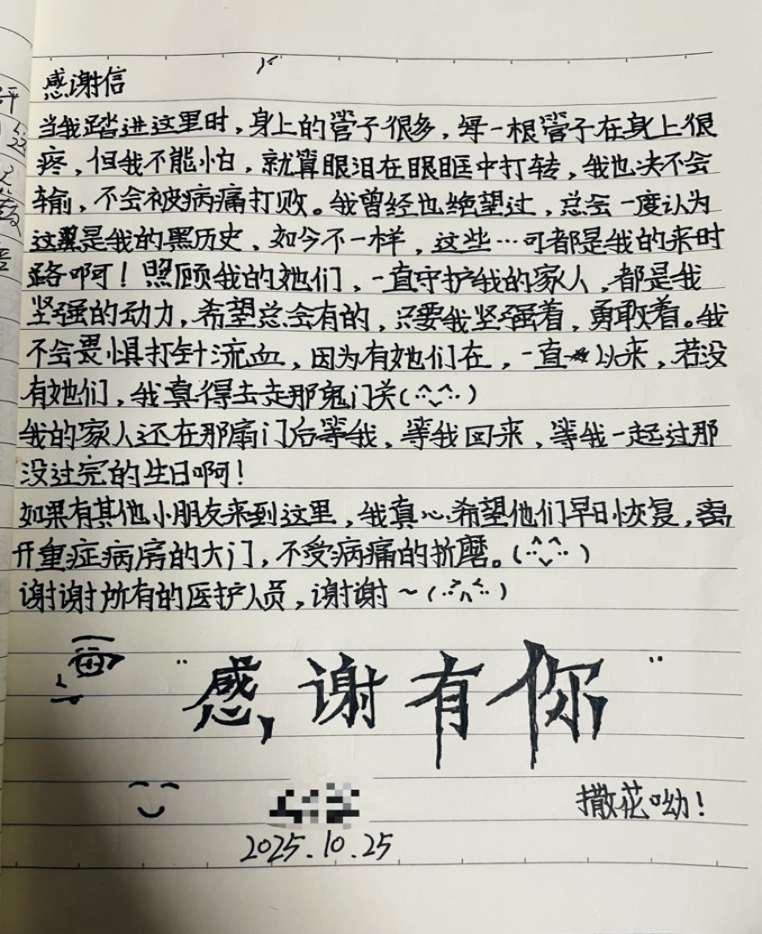 感谢信
当我踏进这里时，身上的管子很多，每一根管子在身上很
疼，但我不能怕，就算眼泪在眼眶中打转，我也决不会
输，不会被病痛打败。我曾经也绝望过，总会一度认为
这是我的黑历史，如今不一样，这些…可都是我的来时
路啊！照顾我的她们，一直守护我的家人，都是我
坚强的动力，希望总会有的，只要我坚强着，勇敢着。我
不会畏惧打针流血，因为有她们在，一直以来，若没
有她们，我真得去走那鬼门关(^‿^)
我的家人还在那扇门后等我，等我回来，等我一起过那
没过完的生日啊！
如果有其他小朋友来到这里，我真心希望他们早日恢复，离
开重症病房的大门，不受病痛的折磨。(^‿^)
谢谢所有的医护人员，谢谢～(^∩^)
"感谢有你"
撒花呦！
2025.10.25